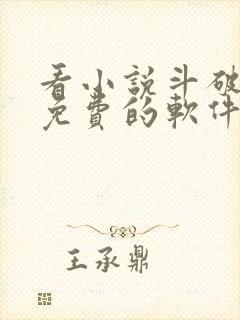 看小說斗破
免費的軟件
王承鼎